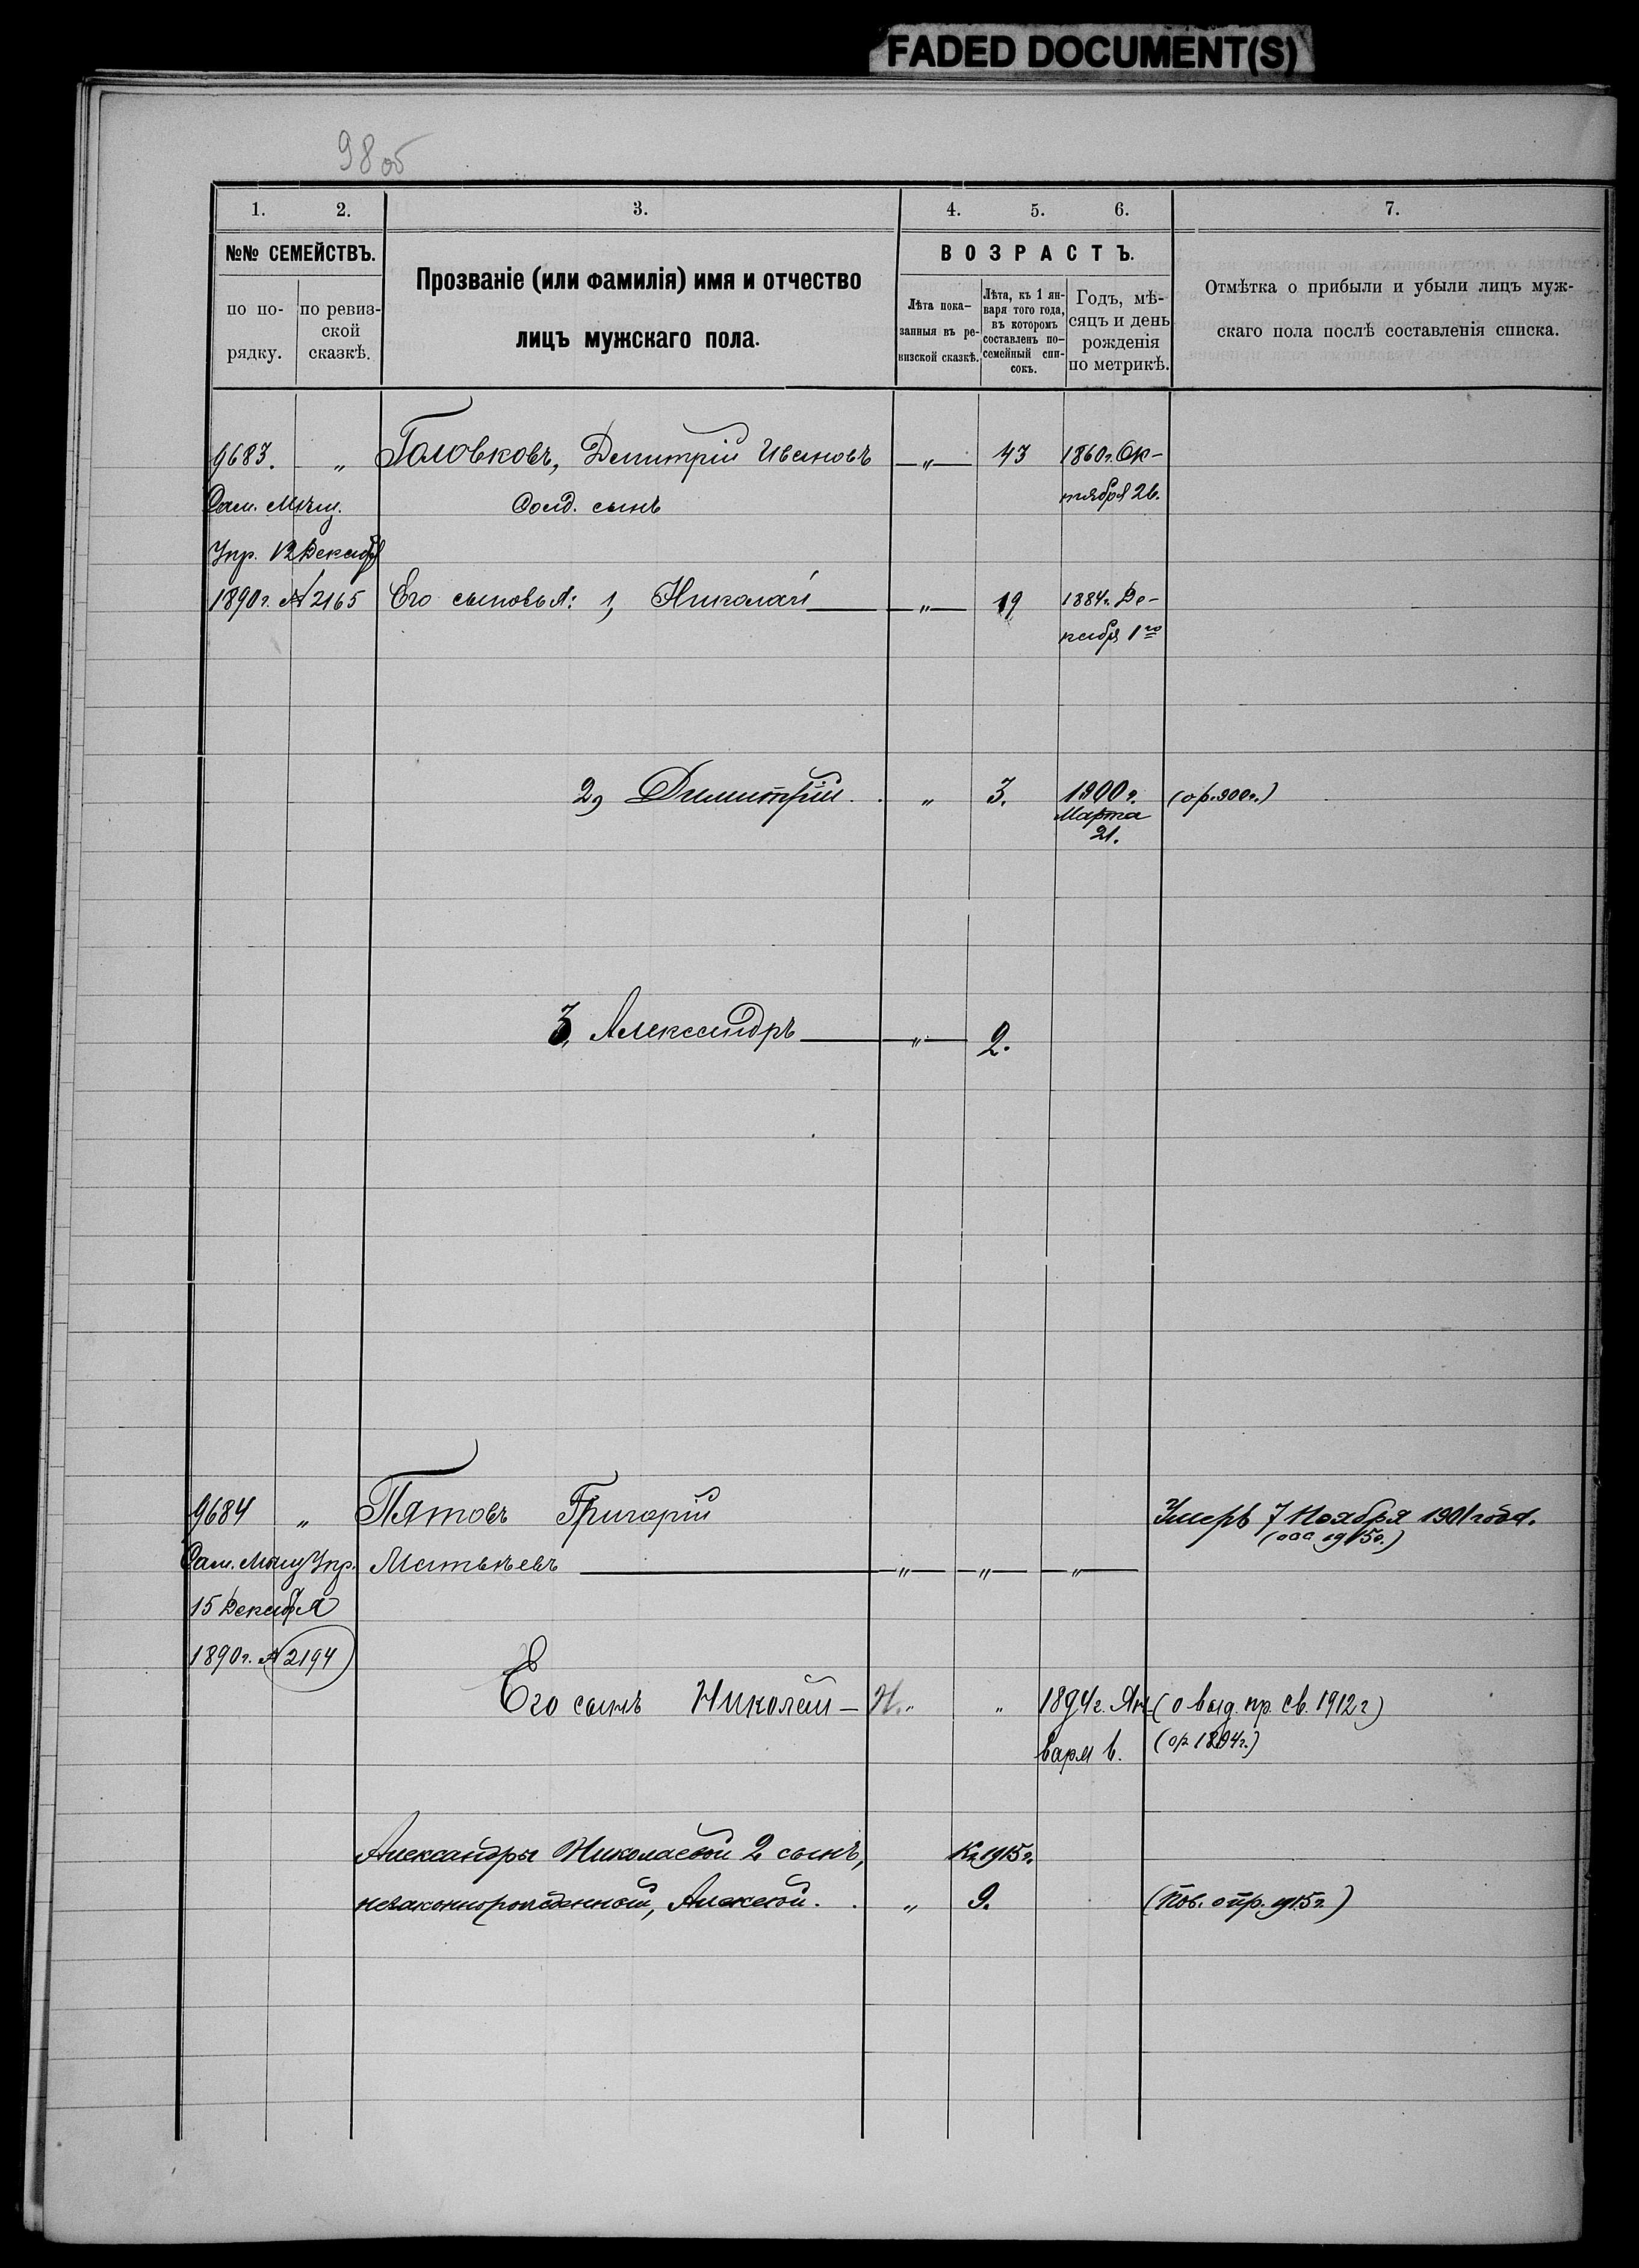 FADED DOCUMENT(S)
98 об
1. 2. 3. 4. 5. 6. 7.
№№ СЕМЕЙСТВЪ.
по по-
рядку.
по ревиз-
ской
сказкѣ.
Прозваніе (или фамилія) имя и отчество
лицъ мужскаго пола.
ВОЗРАСТЪ.
Лѣта пока-
занныя въ ре-
визской сказкѣ.
Лѣта, къ 1 ян-
варя того года,
въ которомъ
составленъ по-
семейный спи-
сокъ.
Годъ, мѣ-
сяцъ и день
рожденія
по метрикѣ.
Отмѣтка о прибыли и убыли лицъ муж-
скаго пола послѣ составленія списка.
9683. „ Головковъ, Дмитрій Ивановъ — „ — 43 1860 г. Ок-
Сам. Мѣщ. Солд. сынъ тября 26.
Упр. 12 Декабря
1890 г. № 2165 Его сыновья: 1, Николай — „ — 19 1884 г. Де-
кабря 1го
2, Димитрій. . „ 3. 1900 г. (ор. 900 г.)
Марта
21.
3, Александръ — „ — 2.
9684 „ Пятовъ Григорій Умеръ 7 Ноября 1901 года.
Сам. Мѣщ Упр. Матвѣевъ — „ — „ — „ —
15 Декабря
1890 г. № 2194
Его сынъ Николай — Н. „ „ 1894 г. Ян- (о выд. пр. св. 1912 г)
варя 6. (ор 1894 г.)
Александры Николаевой 2 сынъ, Къ 1915 г.
незаконнорожденный, Алексей. . „ 9. (Пов. о пр. 915 г.)